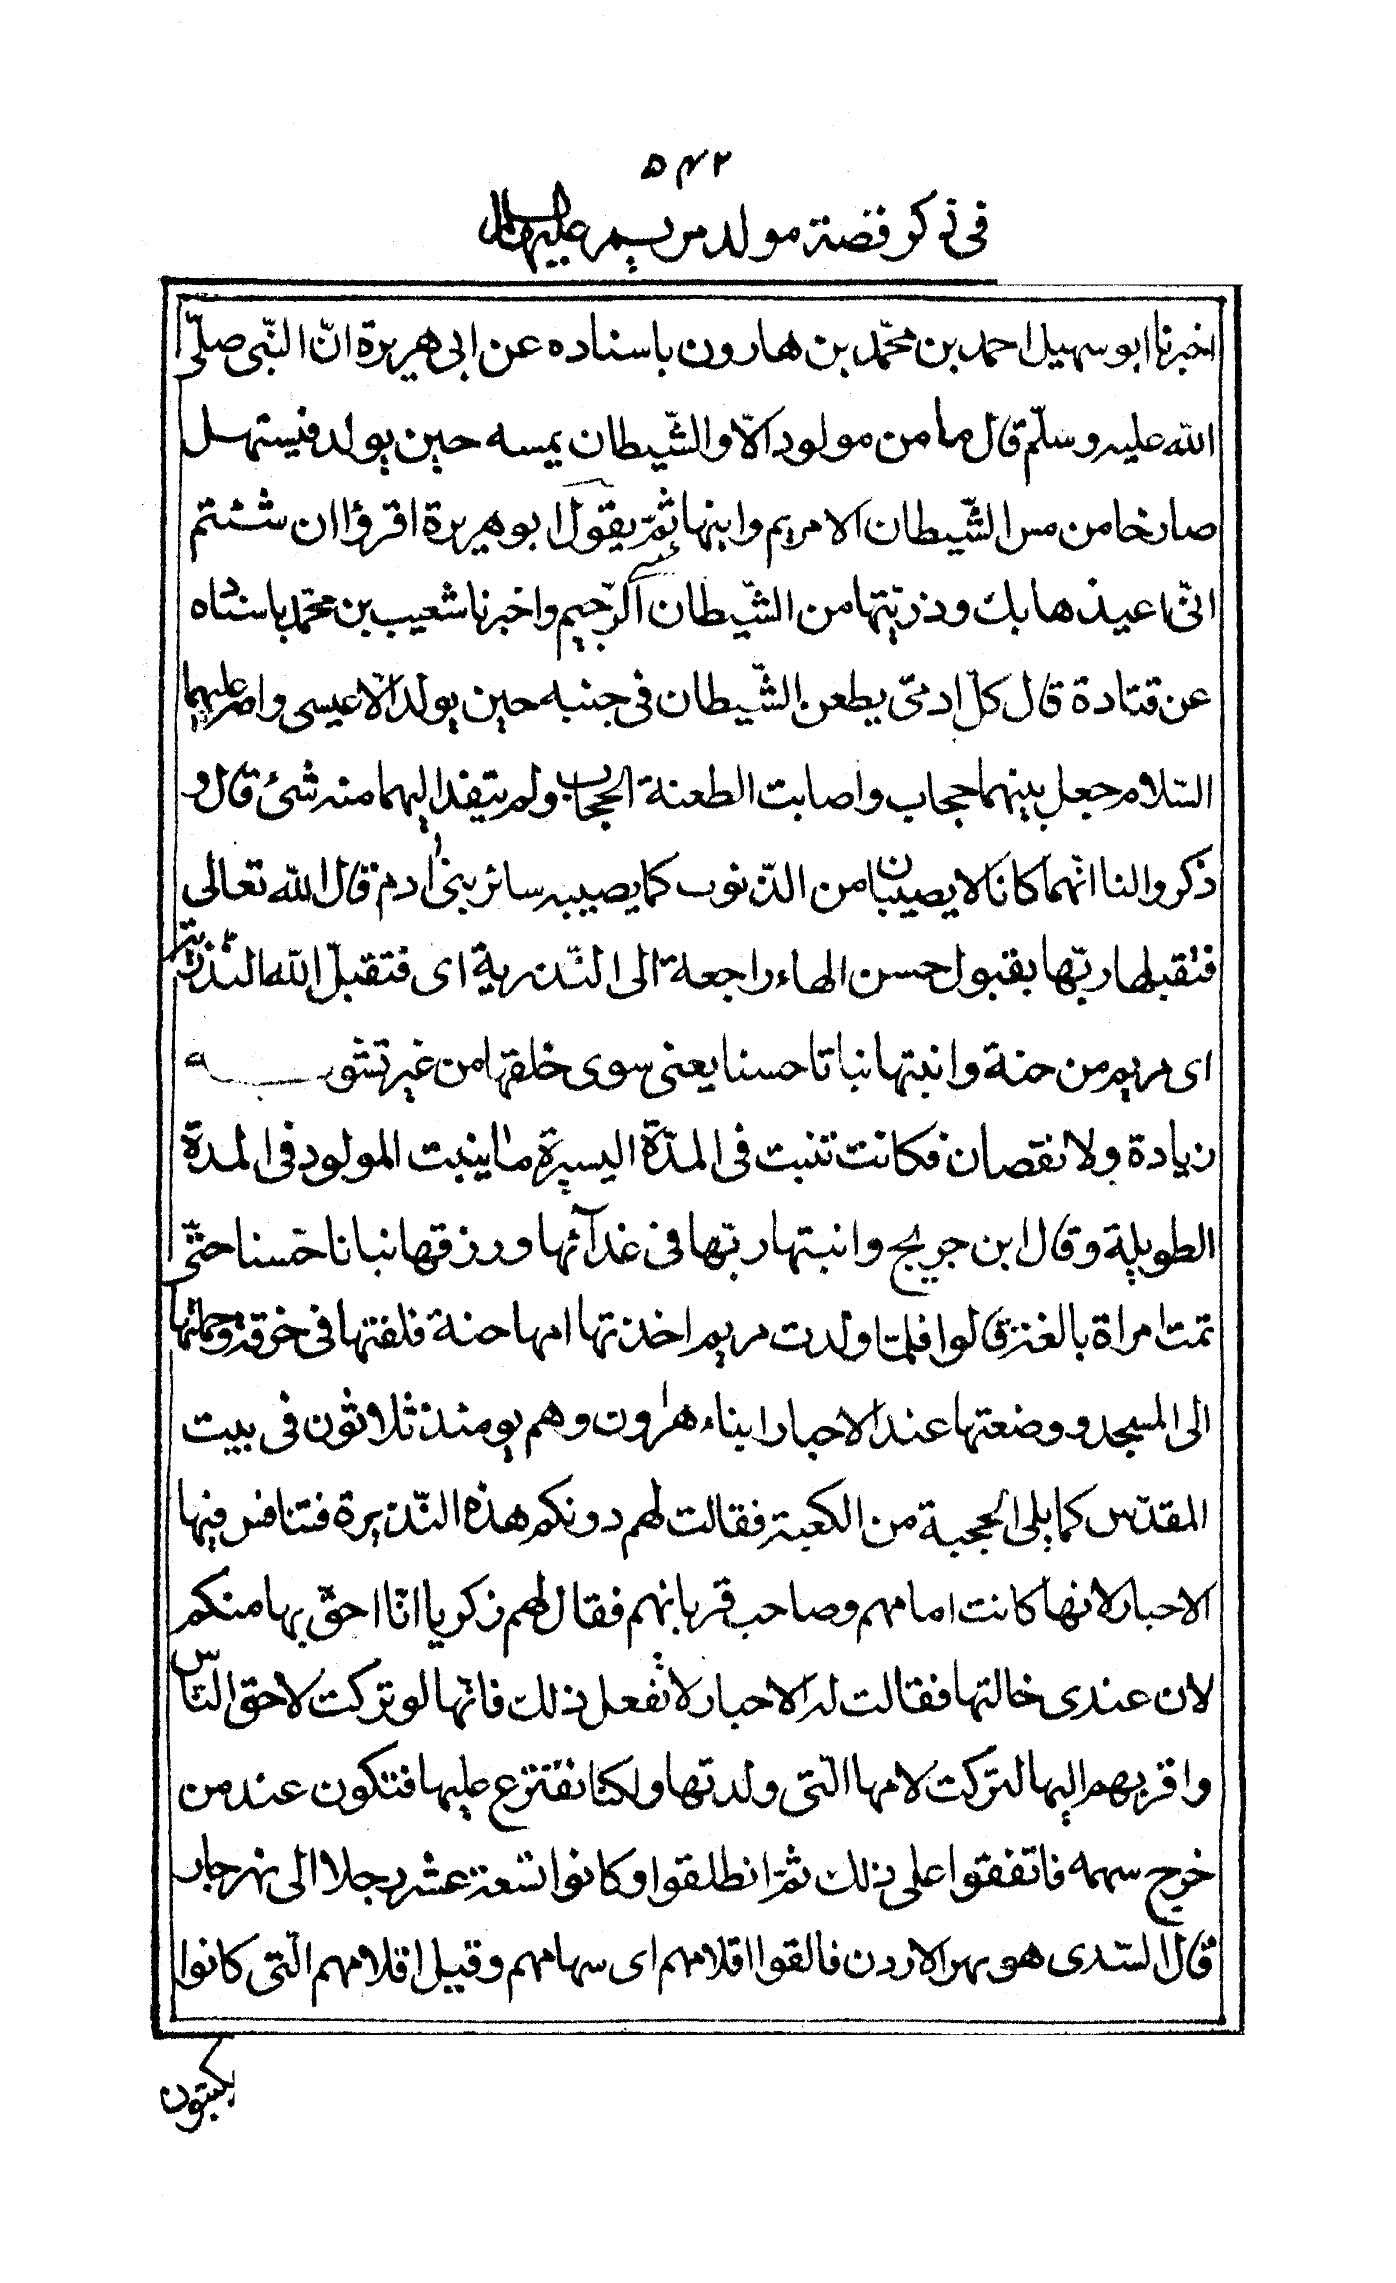 ۵۴۲
فى ذكر قصة مولد مريم عليها السلام
اخبرنا ابو سهيل احمد بن محمّد بن هارون باسناده عن ابى هريرة انّ النّبى صلّى
الله عليه وسلّم قال ما من مولود الّا والشّيطان يمسه حين يولد فيستهل
صارخا من مس الشّيطان الا مريم وابنها ثمّ يقول ابو هريرة اقرؤا ان شئتم
انّى اعيذها بك وذريّتها من الشّيطان الرّجيم واخبرنا شعيب بن محمّد باسناده
عن قتادة قال كلّ ادمىّ يطعن الشّيطان فى جنبه حين يولد الّا عيسى وامه عليهما
السّلام جعل بينهما حجاب واصابت الطعنة الحجاب ولم يتفذ اليهما منه شئ قال و
ذكروا لنا انّهما كانا لا يصيبان من الذّنوب كما يصيبه سائر بنى ادم قال الله تعالى
فتقبلها ربّها بقبول حسن الهاء راجعة الى النّذيرية اى فتقبل الله النّذيرية
اى مريم من حنة وانبتها نباتا حسنا يعنى سوى خلقتها من غير تشويه
زيادة ولا نقصان فكانت تنبت فى المدّة اليسيرة ما ينبت المولود فى المدة
الطويلة وقال ابن جريج وانبتها ربّها فى غذآئها ورزقها نباتا حسنا حتّى
تمت امراة بالغة قالوا فلمّا ولدت مريم اخذتها امها حنة فلفتها فى خرقة وحملتها
الى المسجد ووضعتها عند الاحبار ابناء هرون وهم يومئذ ثلاثون فى بيت
المقدّس كما يلى الحجبة من الكعبة فقالت لهم دونكم هذه النّذيرة فتنافس فيها
الاحبار لانها كانت امامهم وصاحب قربانهم فقال لهم زكريا انّا احقّ بها منكم
لان عندى خالتها فقالت له الاحبار لا تفعل ذلك فانّها لو تركت لاحق النّاس
واقربهم اليها لتركت لامها الّتى ولدتها ولكنّا نقترع عليها فتكون عند من
خرج سهمه فاتفقوا على ذلك ثمّ انطلقوا وكانوا تسعة عشر رجلا الى نهر جار
قال السّدى هو نهر الاردن فالقوا اقلامهم اى سهامهم وقيل اقلامهم الّتى كانوا
يكتبون